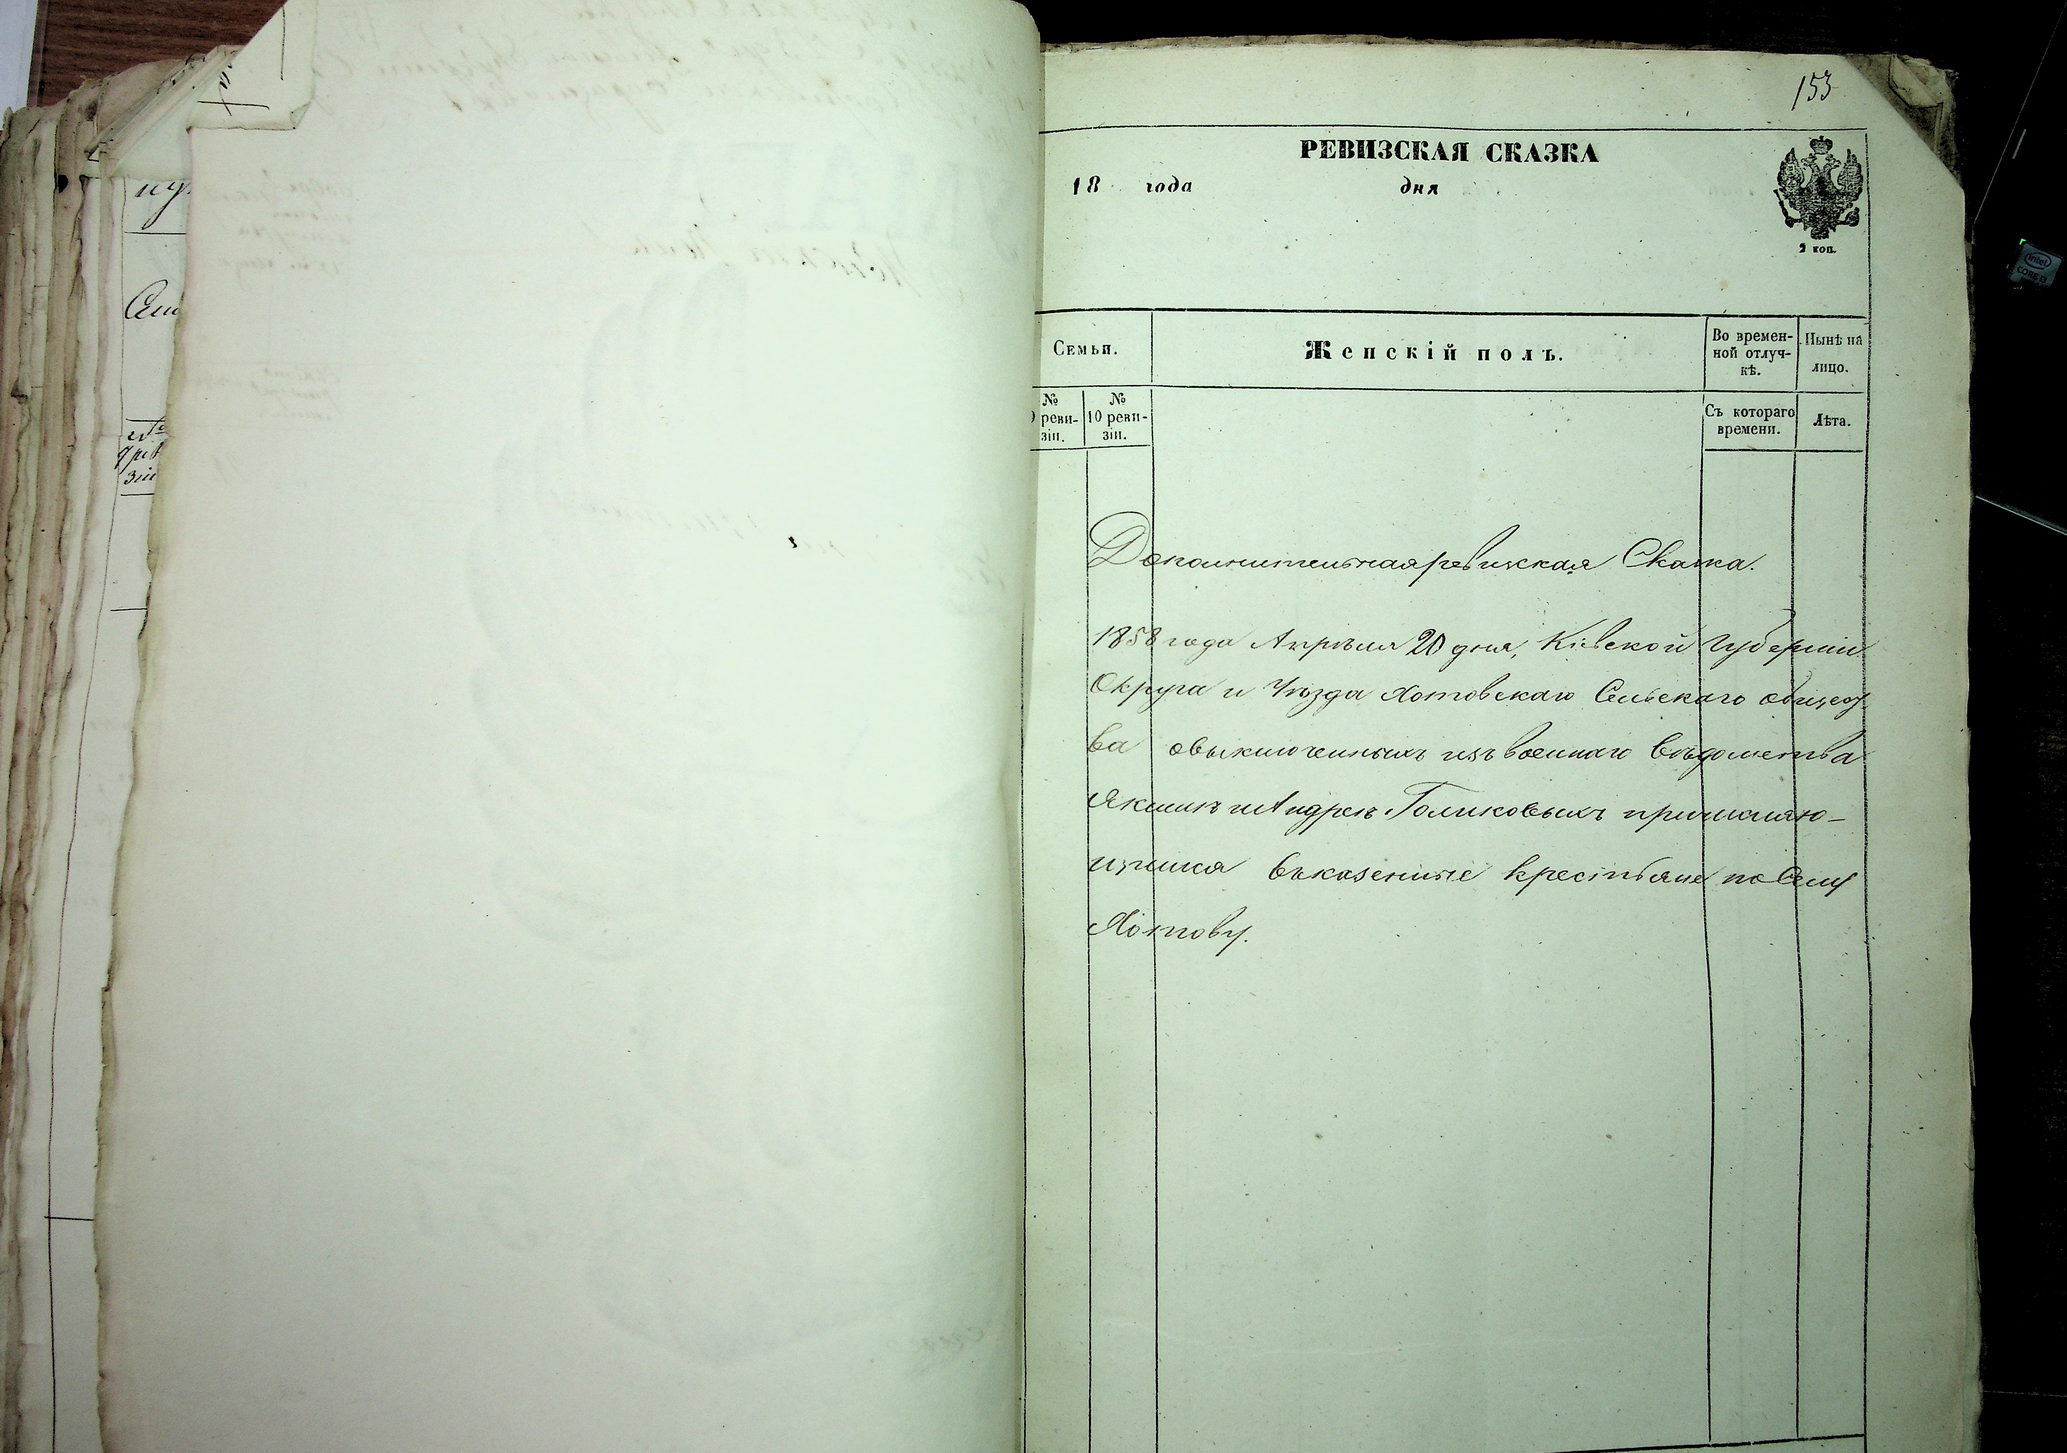 153
РЕВИЗСКАЯ СКАЗКА
18 года дня
2 коп.
Семьи.
Женскій полъ.
Во времен-
ной отлуч-
кѣ.
Нынѣ на
лицо.
№
9 реви-
зіи.
№
10 реви-
зіи.
Съ котораго
времени.
Лѣта.
Дополнительная ревизская Сказка.
1858 года Апрѣля 20 дня, Кіевской Губерніи
Округа и Уѣзда Хотовскаго Сельскаго общест
ва овыключенныхъ изъ военнаго вѣдомства
Якимѣ и Андреѣ Голиковыхъ причисляю-
щихся въ казенные крестьяне по Селу
Хотову.